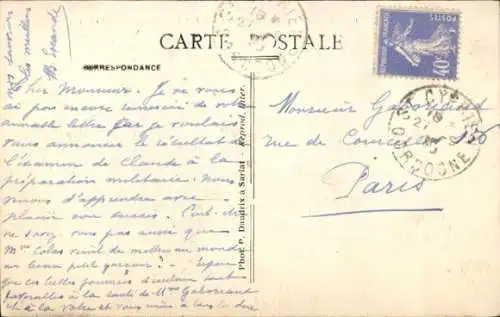 nos souvenirs
les meilleurs
CARTE POSTALE
CORRESPONDANCE
POSTES
40c
Cher Monsieur. Je ne vous
ai pas encore remercié de votre
aimable lettre car je voulais
vous annoncer le résultat de
l'examen de Claude à la
préparation militaire. Nous
venons d'apprendre avec
plaisir son succès. Peut-être
ne savez vous pas aussi que
Mme vient de mettre au monde
un beau petit garçon! J'espère
que ces belles journées d'automne sont
favorables à la santé de Mme
à la votre et vous
Phot. P. Daudrix à Sarlat - Reprod. Inter.
Monsieur
rue de Courcelles 150
Paris
DORDOGNE